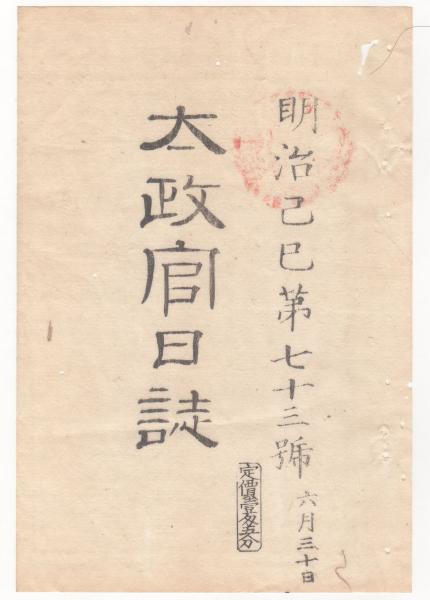 明治己巳第七十三號 六月三十日
太政官日誌
定價壹匁五分